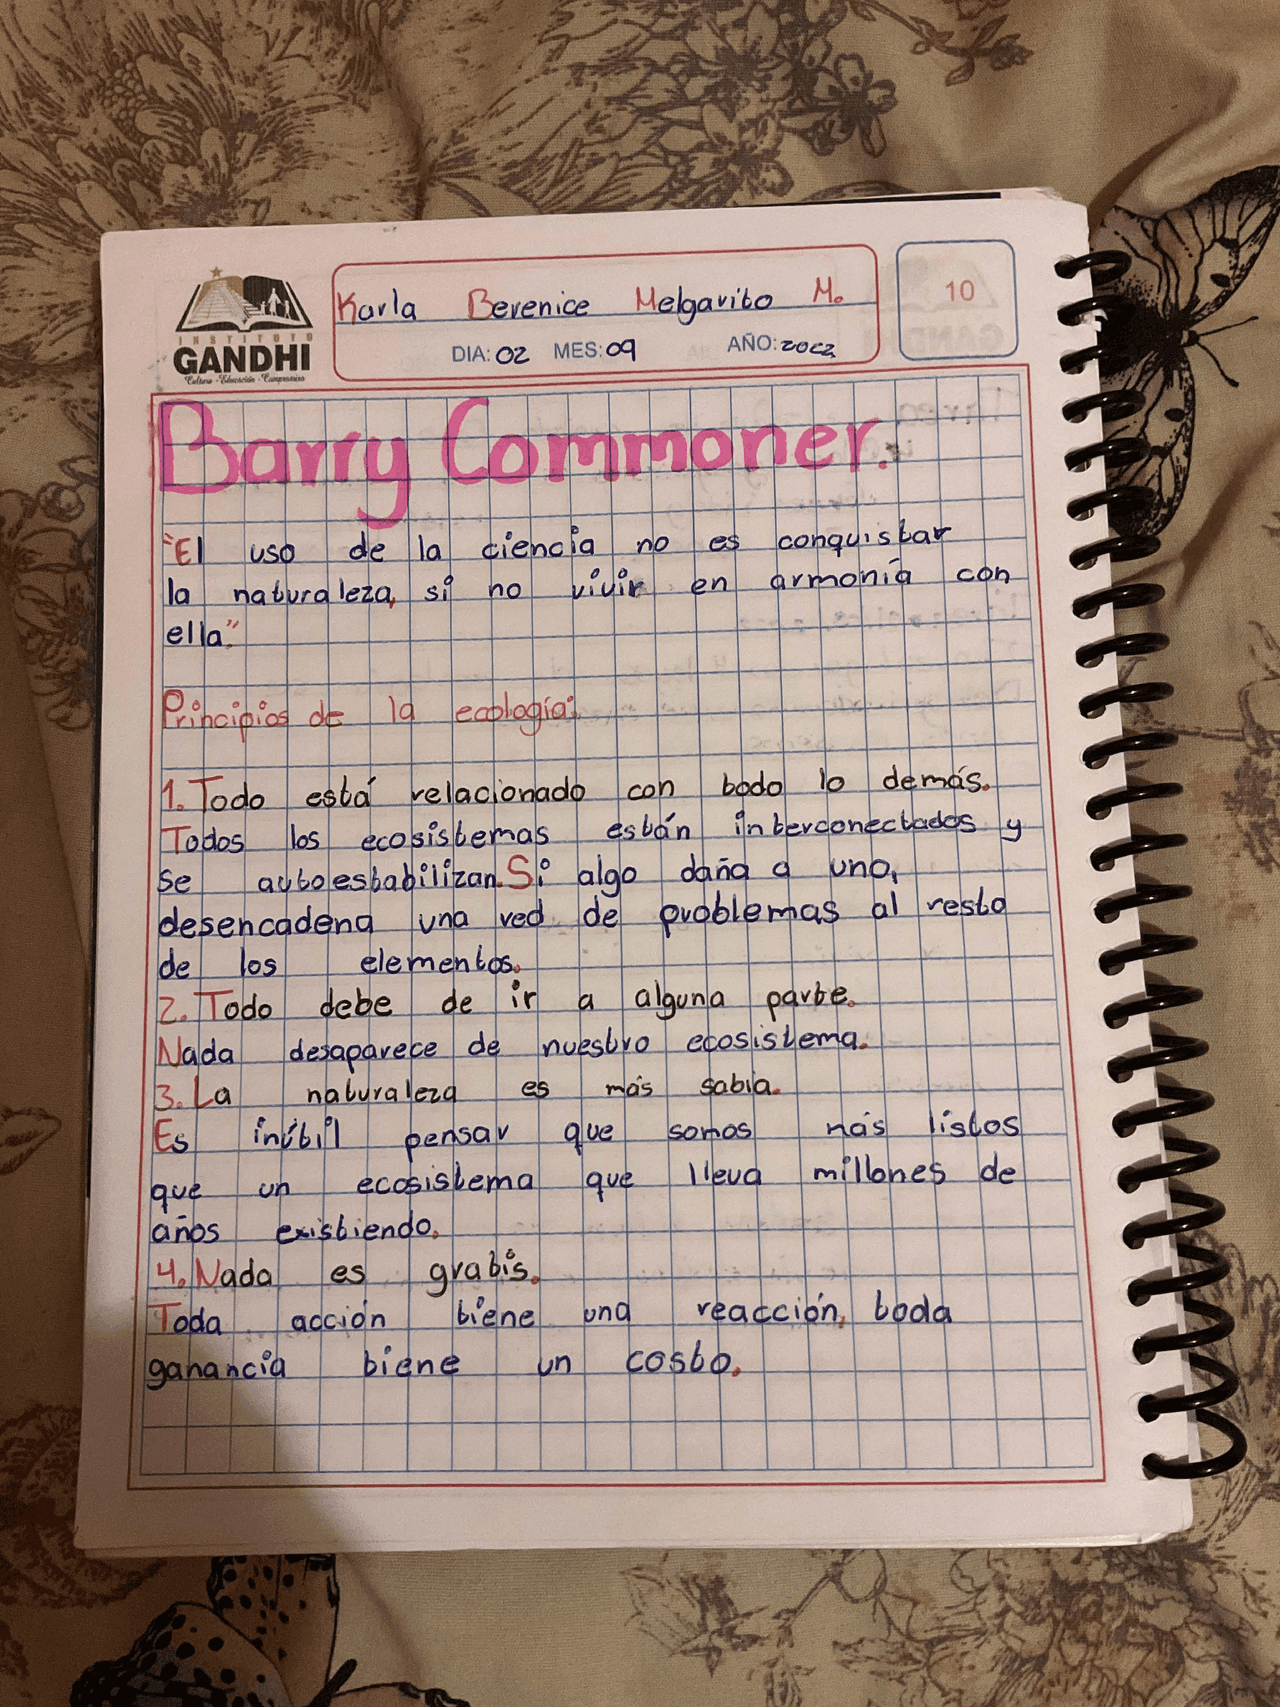 INSTITUTO
GANDHI
Cultura - Educación - Compromiso
Karla Berenice Melgarito M.
DIA: 02 MES: 09 AÑO: 2022
10
Barry Commoner.
"El uso de la ciencia no es conquistar
la naturaleza, si no vivir en armonía con
ella."
Principios de la ecología:
1. Todo está relacionado con todo lo demás.
Todos los ecosistemas están interconectados y
se autoestabilizan. Si algo daña a uno,
desencadena una red de problemas al resto
de los elementos.
2. Todo debe de ir a alguna parte.
Nada desaparece de nuestro ecosistema.
3. La naturaleza es más sabia.
Es inútil pensar que somos más listos
que un ecosistema que lleva millones de
años existiendo.
4. Nada es gratis.
Toda acción tiene una reacción, toda
ganancia tiene un costo.